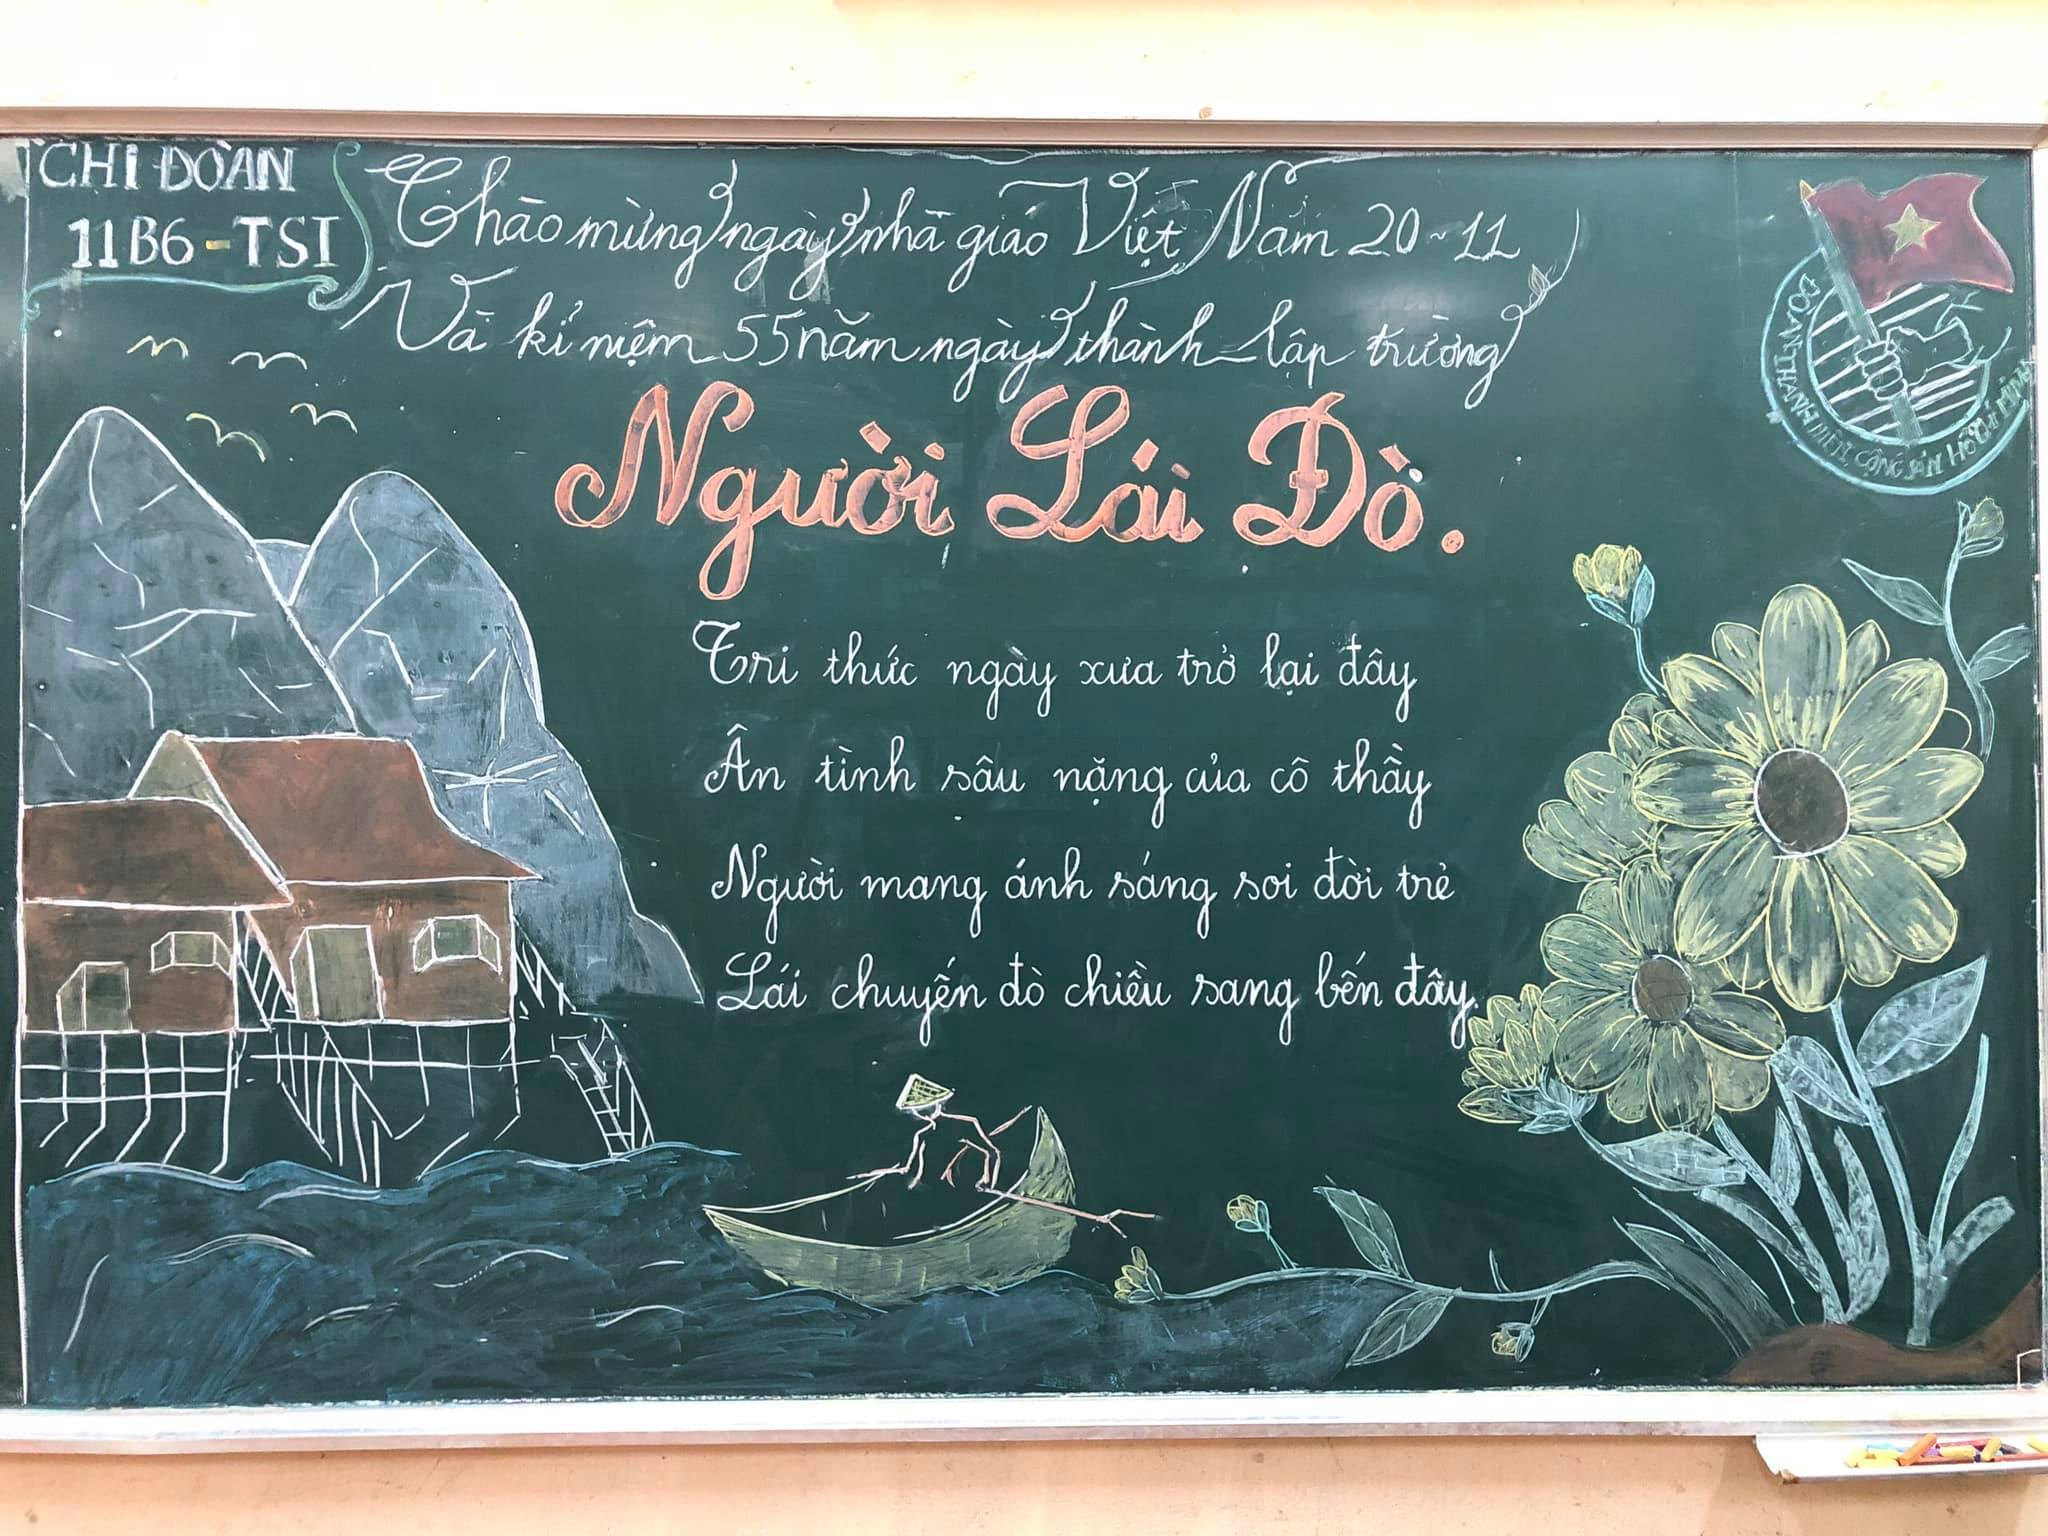 CHI ĐOÀN
11B6-TSI
Chào mừng ngày nhà giáo Việt Nam 20~11
Và kỉ niệm 55 năm ngày thành lập trường
Người Lái Đò.
Tri thức ngày xưa trở lại đây
Ân tình sâu nặng của cô thầy
Người mang ánh sáng soi đời trẻ
Lái chuyến đò chiều sang bến đây.
ĐOÀN THANH NIÊN CỘNG SẢN HỒ CHÍ MINH